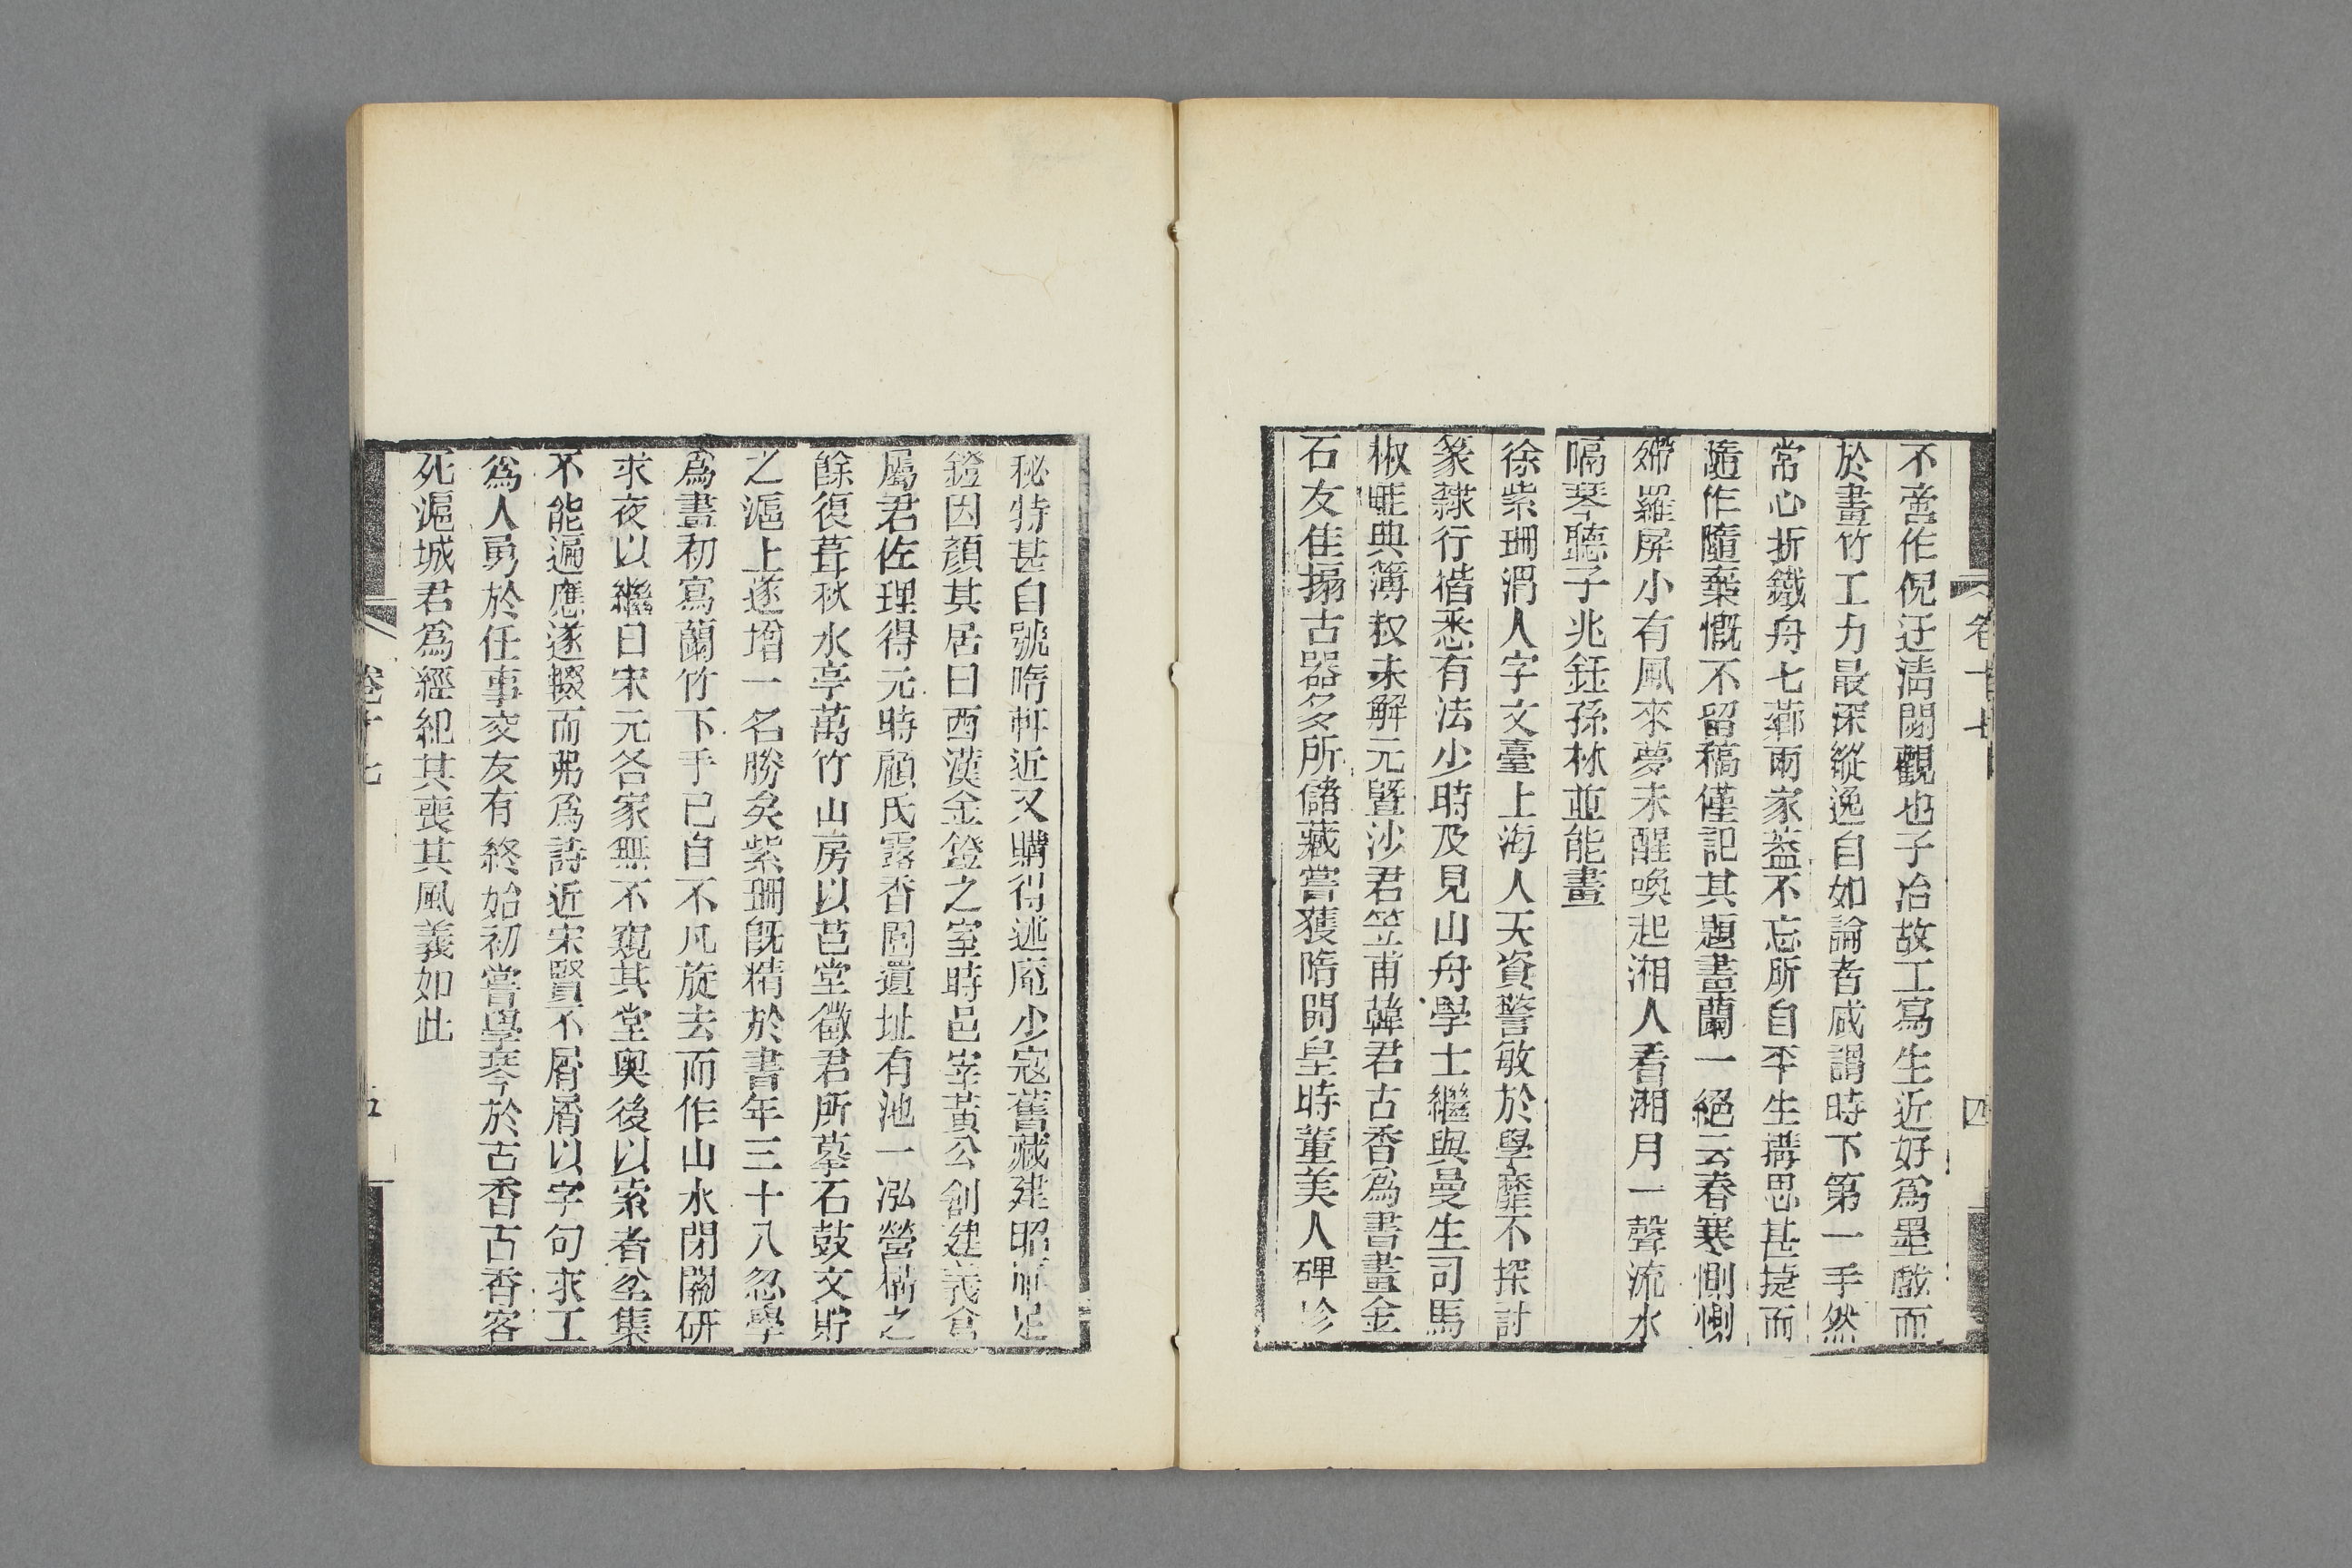 不啻作倪迂清閟觀也子冶故工寫生近好爲墨戲而
於畫竹工力最深縱逸自如論者咸謂時下第一手然
常心折鐵舟七薌兩家蓋不忘所自平生構思甚捷而
隨作隨棄慨不留稿僅記其題畫蘭一絕云春寒惻惻
掩羅屏小有風來夢未醒喚起湘人看湘月一聲流水
隔琴聽子兆鈺孫林並能畫
徐紫珊渭人字文臺上海人天資警敏於學靡不探討
篆隸行楷悉有法少時及見山舟學士繼與曼生司馬
椒畦典簿叔未解元曁沙君笠甫韓君古香爲書畫金
石友佳搨古器多所儲藏嘗獲隋開皇時董美人碑珍
卷十七
四
秘特甚自號隋軒近又購得述庵少寇舊藏建昭雁足
鐙因顏其居曰西漢金鐙之室時邑宰黃公創建義倉
屬君佐理得元時顧氏露香園遺址有池一泓營構之
餘復葺秋水亭萬竹山房以芭堂徵君所摹石鼓文貯
之滬上遂增一名勝矣紫珊旣精於書年三十八忽學
爲畫初寫蘭竹下手已自不凡旋去而作山水閉關研
求夜以繼日宋元各家無不窺其堂奧後以索者坌集
不能遍應遂輟而弗爲詩近宋賢不屑屑以字句求工
爲人勇於任事交友有終始初嘗學琴於古香古香客
死滬城君爲經紀其喪其風義如此
卷十七
五